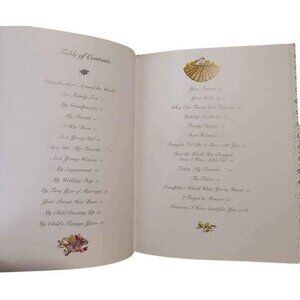 Table of Contents
"Grandmother" Around the World
Our Family Tree
My Grandparents
My Parents
I Was Born
As a Girl
As a Girl My Favorite
As a Young Woman
My Engagement
My Wedding Day
My First Year of Marriage
Your Parent Was Born
My Child Growing Up
My Child's Teenage Years
Your Parents
Your Birth
What Our Family Has
Holiday Traditions
Family Recipes
Best Relatives
Thoughts I'd Like to Share with You
How the World Has Changed
Since I Was a Little Girl
Today My Favorite
The Future
Grandfather Would Want You to Know
I Forgot to Mention
Treasures I Have Saved for You